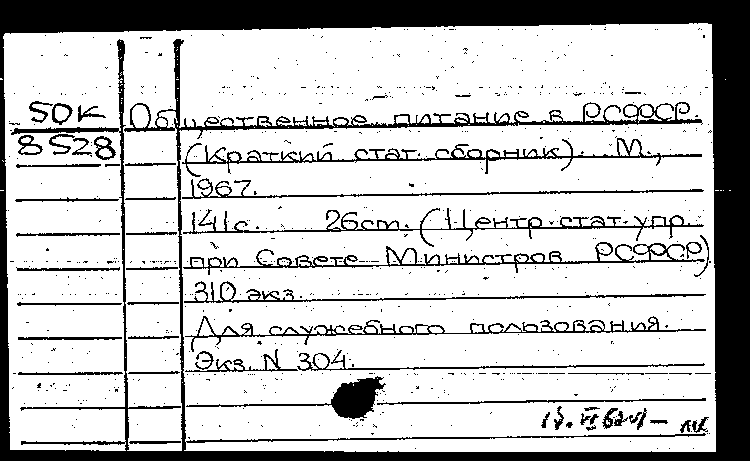 50К Общественное питание в РСФСР
8528 (Краткий стат. сборник). М.,
1967.
141с. 26см. (Центр. стат. упр.
при Совете Министров РСФСР)
310 экз.
Для служебного пользования.
Экз. N 304.